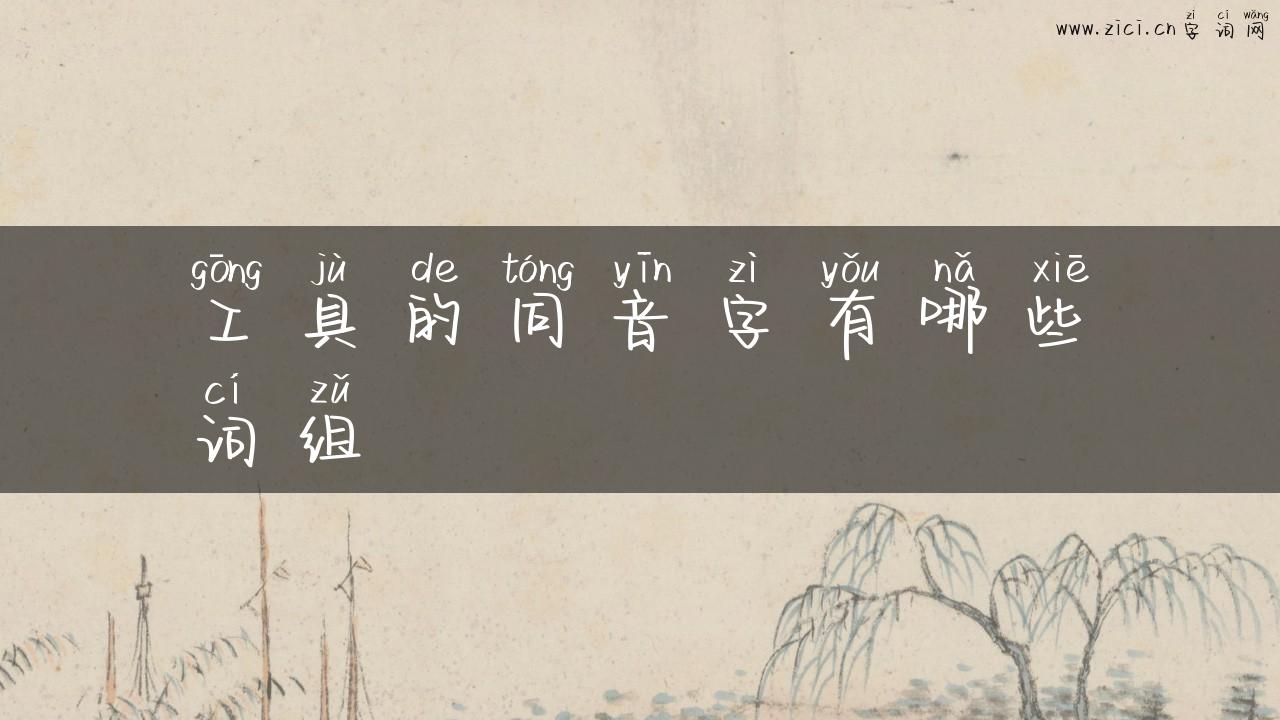 zì cí wǎng
www.zici.cn 字词网
gōng jù de tóng yīn zì yǒu nǎ xiē
工具的同音字有哪些
cí zǔ
词组